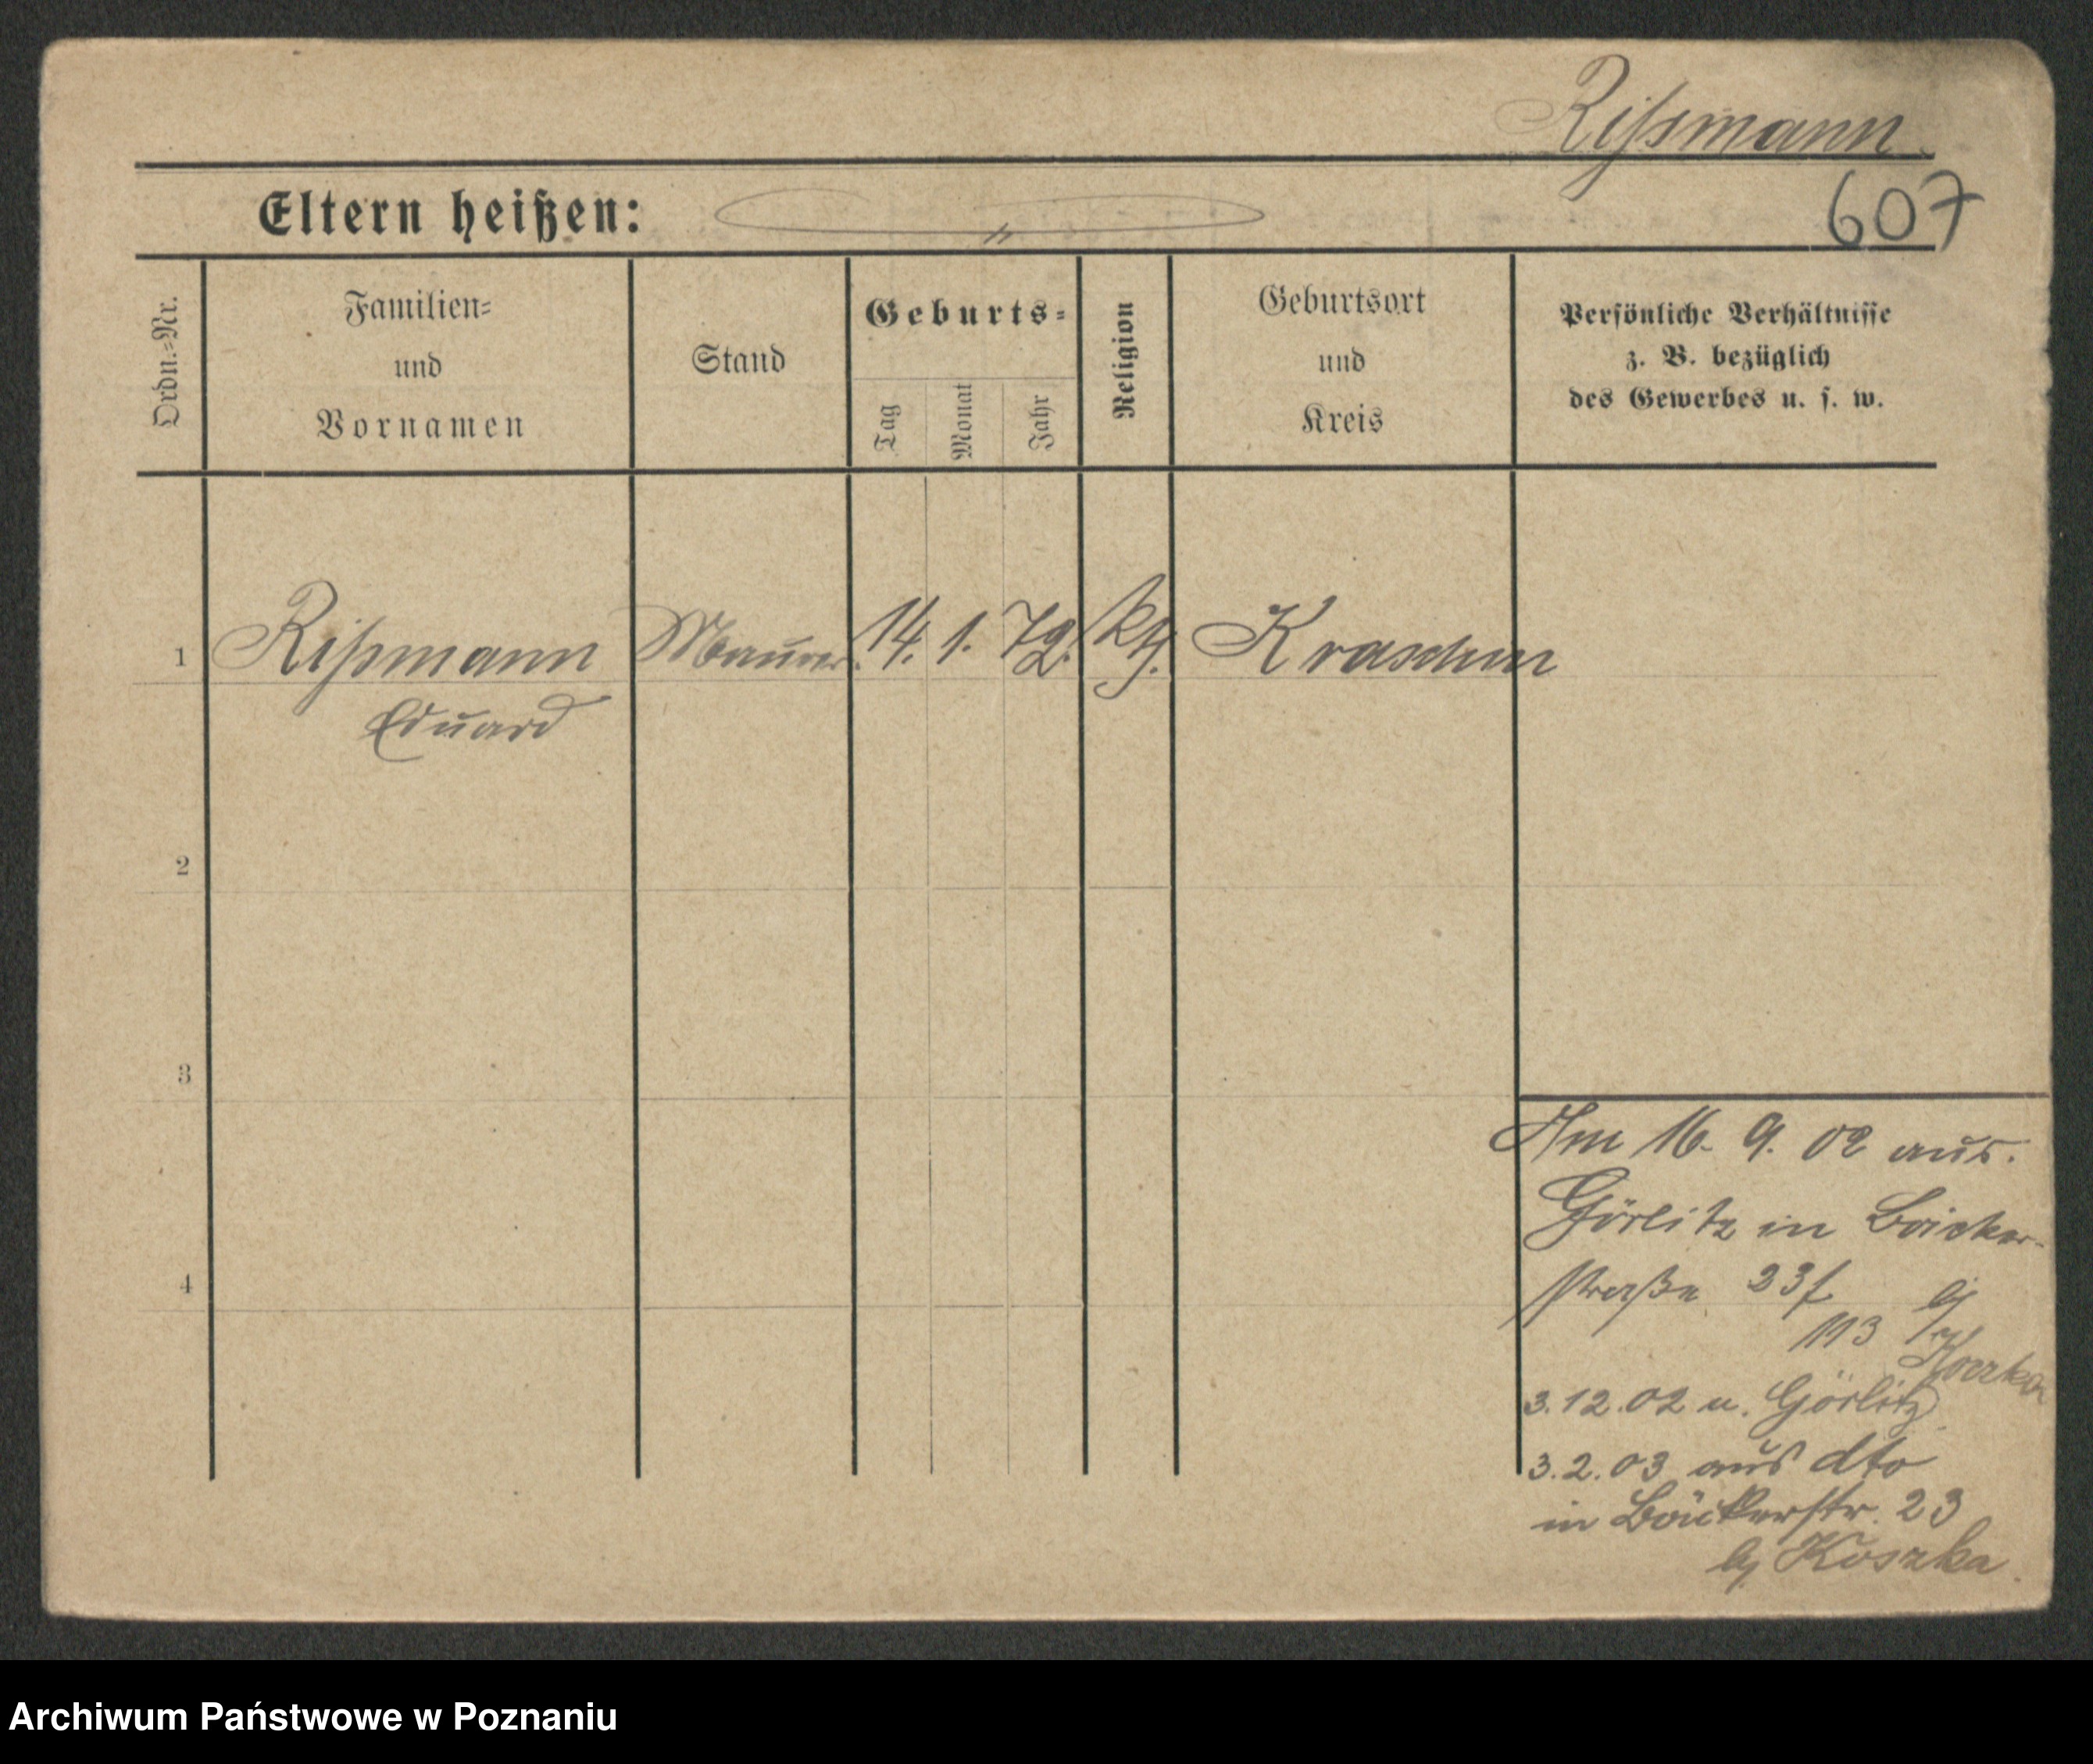 Rißmann
Eltern heißen:
607
Ordn.-Nr.
Familien-
und
Vornamen
Stand
Geburts-
Tag
Monat
Jahr
Religion
Geburtsort
und
Kreis
Persönliche Verhältnisse
z. B. bezüglich
des Gewerbes u. s. w.
1 Rißmann Maurer 14. 1. 72. Kth.
Eduard
2
3
4
Am 16. 9. 02 aus.
Görlitz in Bäcker-
straße 23
bj
113
3.12.02 n. Görlitz
3.2.03 aus dto
in Bäckerstr. 23
bj Koszka
Archiwum Państwowe w Poznaniu